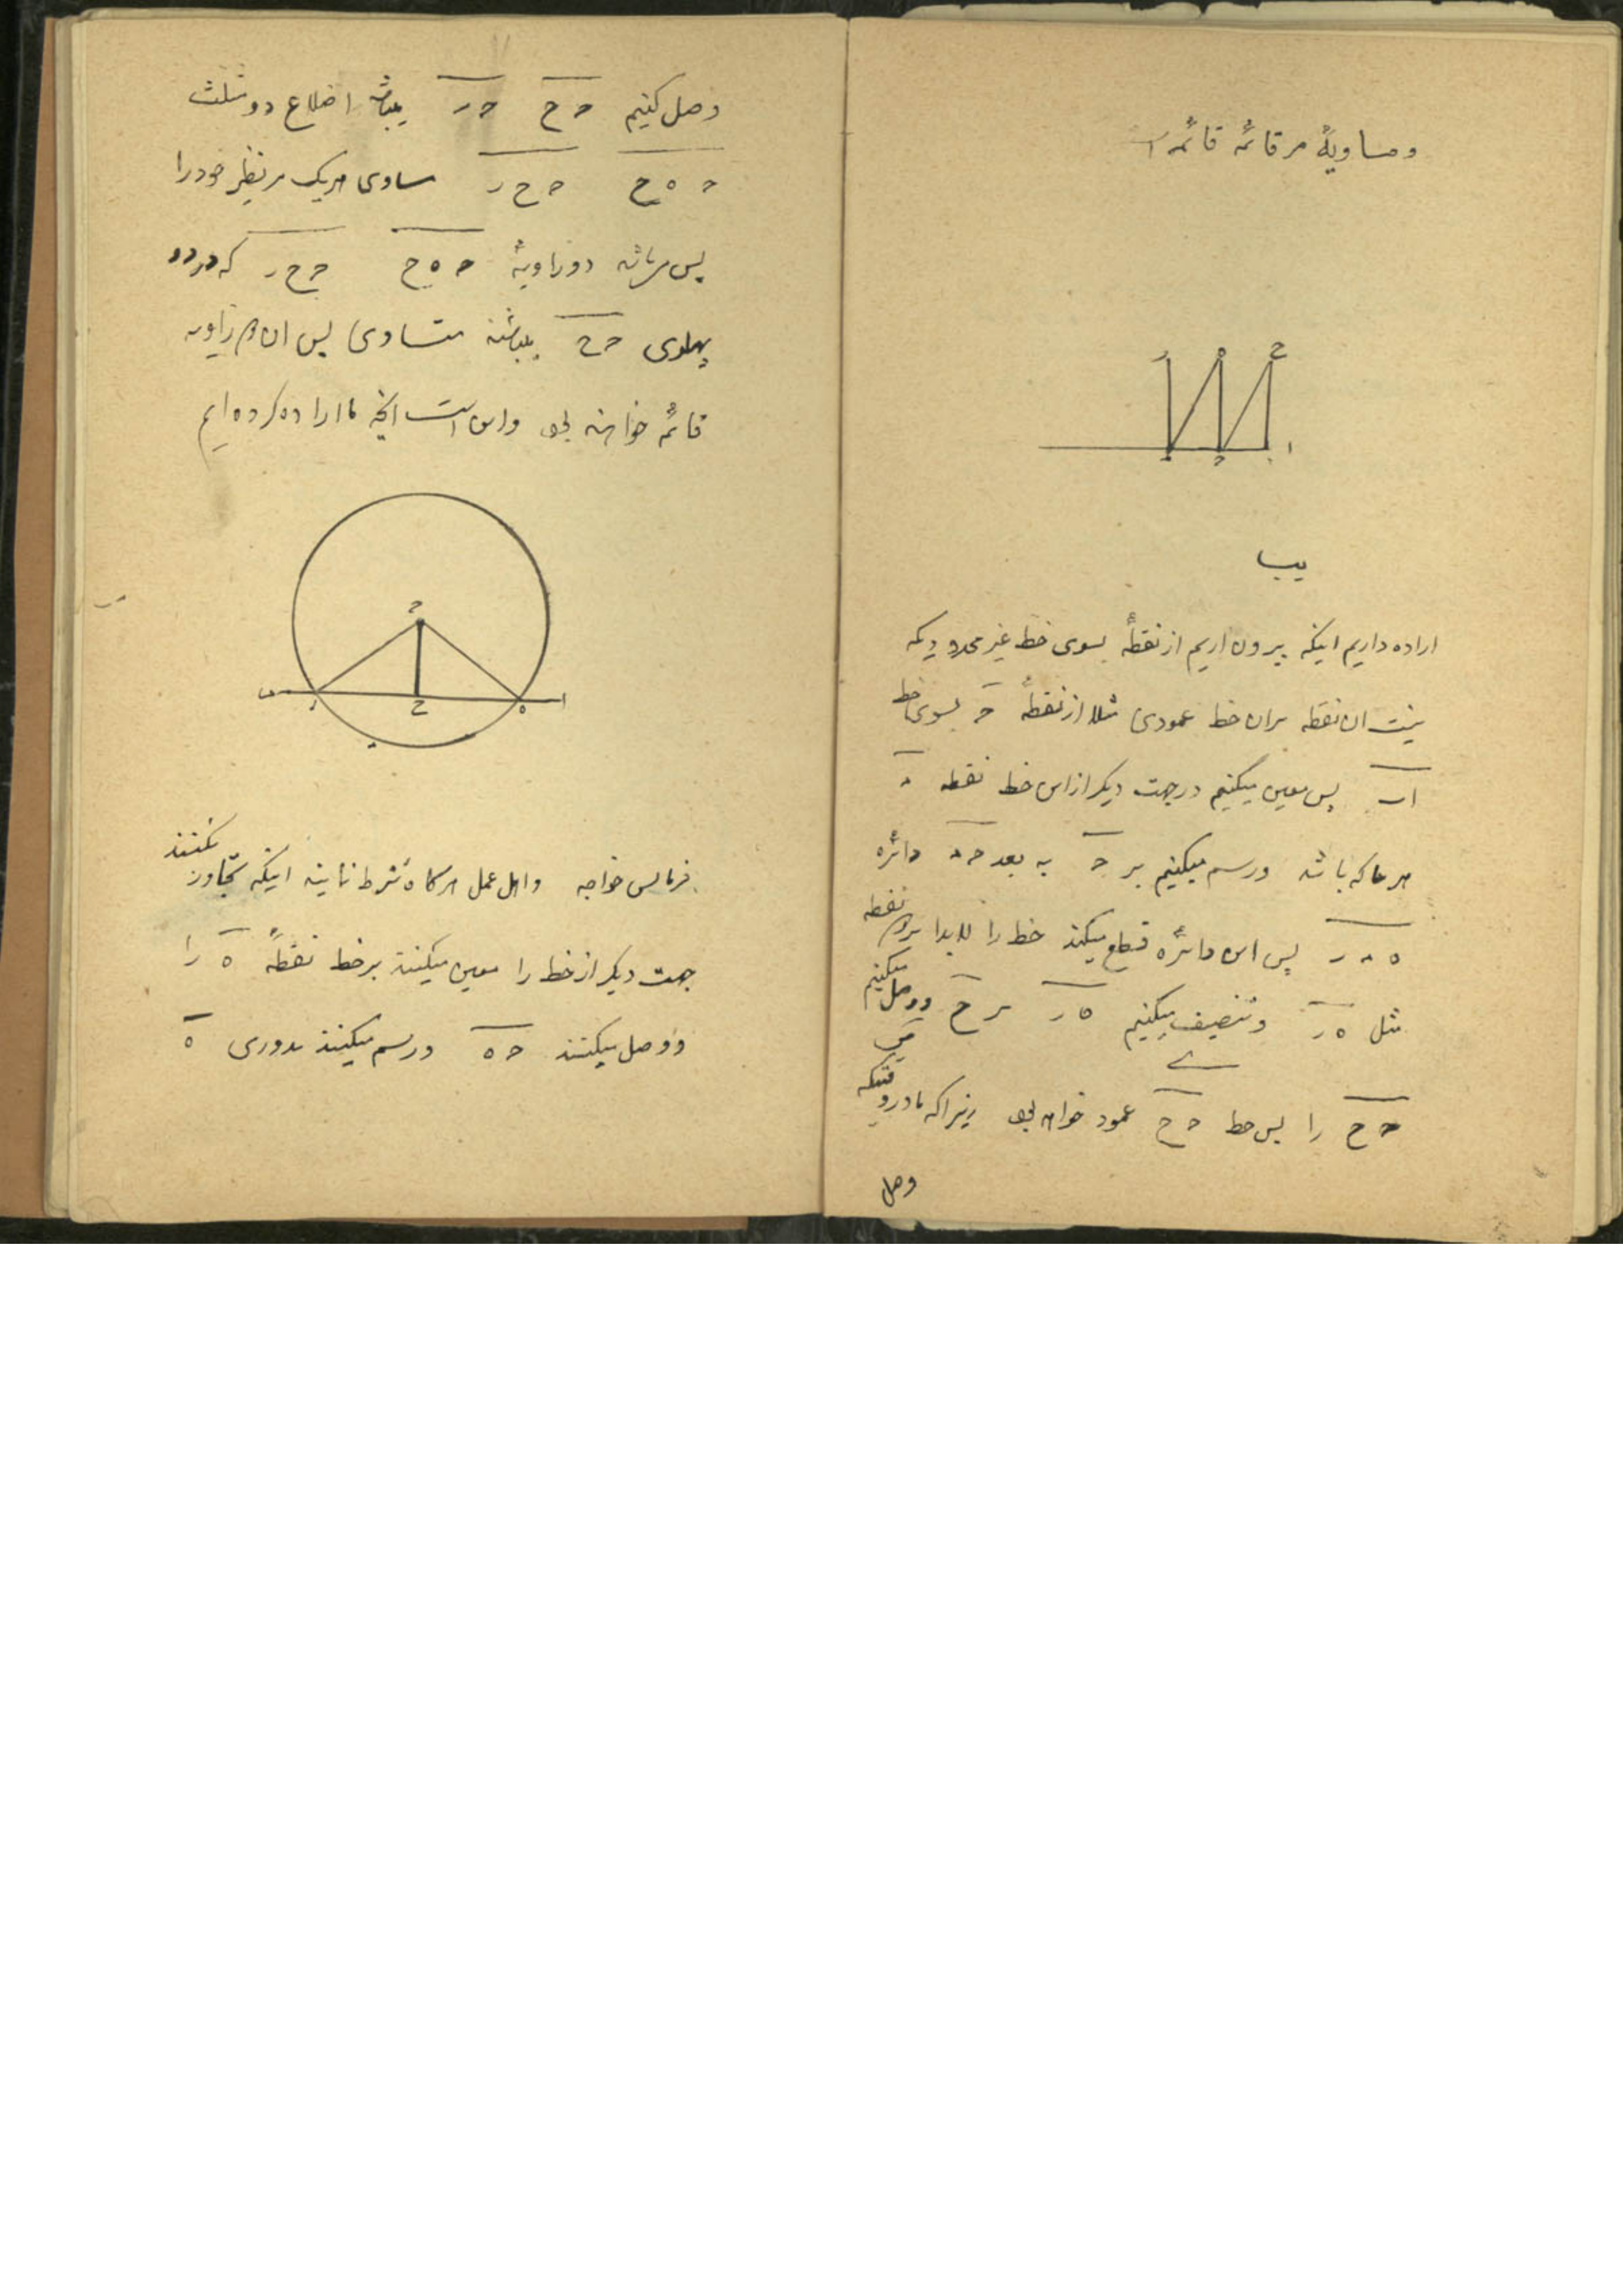 و مساویهٔ مر قائمهٔ قائمه
یب
اراده داریم اینکه بیرون اریم از نقطهٔ بسوی خط غیر محدودیکه
نیست ان نقطه بران خط عمودی مثلا از نقطهٔ ح بسوی خط
اب پس معین میکنیم در جهت دیکر از این خط نقطه ء
هر جا که باشد و رسم میکنیم بر ح به بعد حء دائره
ه ء ر پس این دائره قطع میکند خط را لابدا بر دو نقطه
مثل ه ر و تنصیف میکنیم ه ر بر ح و وصل میکنیم
ح ح را پس خط ح ح عمود خواهد بود زیرا که ما در وقتیکه
وصل
وصل کنیم ح ح ح ر میباشد اضلاع دو مثلث
ح ه ح ح ح ر مساوی هریک مر نظیر خود را
پس میباشد دو زاویهٔ ح ه ح ح ح ر که در دو
پهلوی ح ح میباشند متساوی پس ان دو زاویه
قائمه خواهند بود و این است انچه ما اراده کرده ایم
فرمایش خواجه و اهل عمل هرکاه شرط نمایند اینکه تجاوز نکنند
جهت دیکر از خط را معین میکنند بر خط نقطهٔ ه را
و وصل میکنند ح ه و رسم میکنند بدوری ه